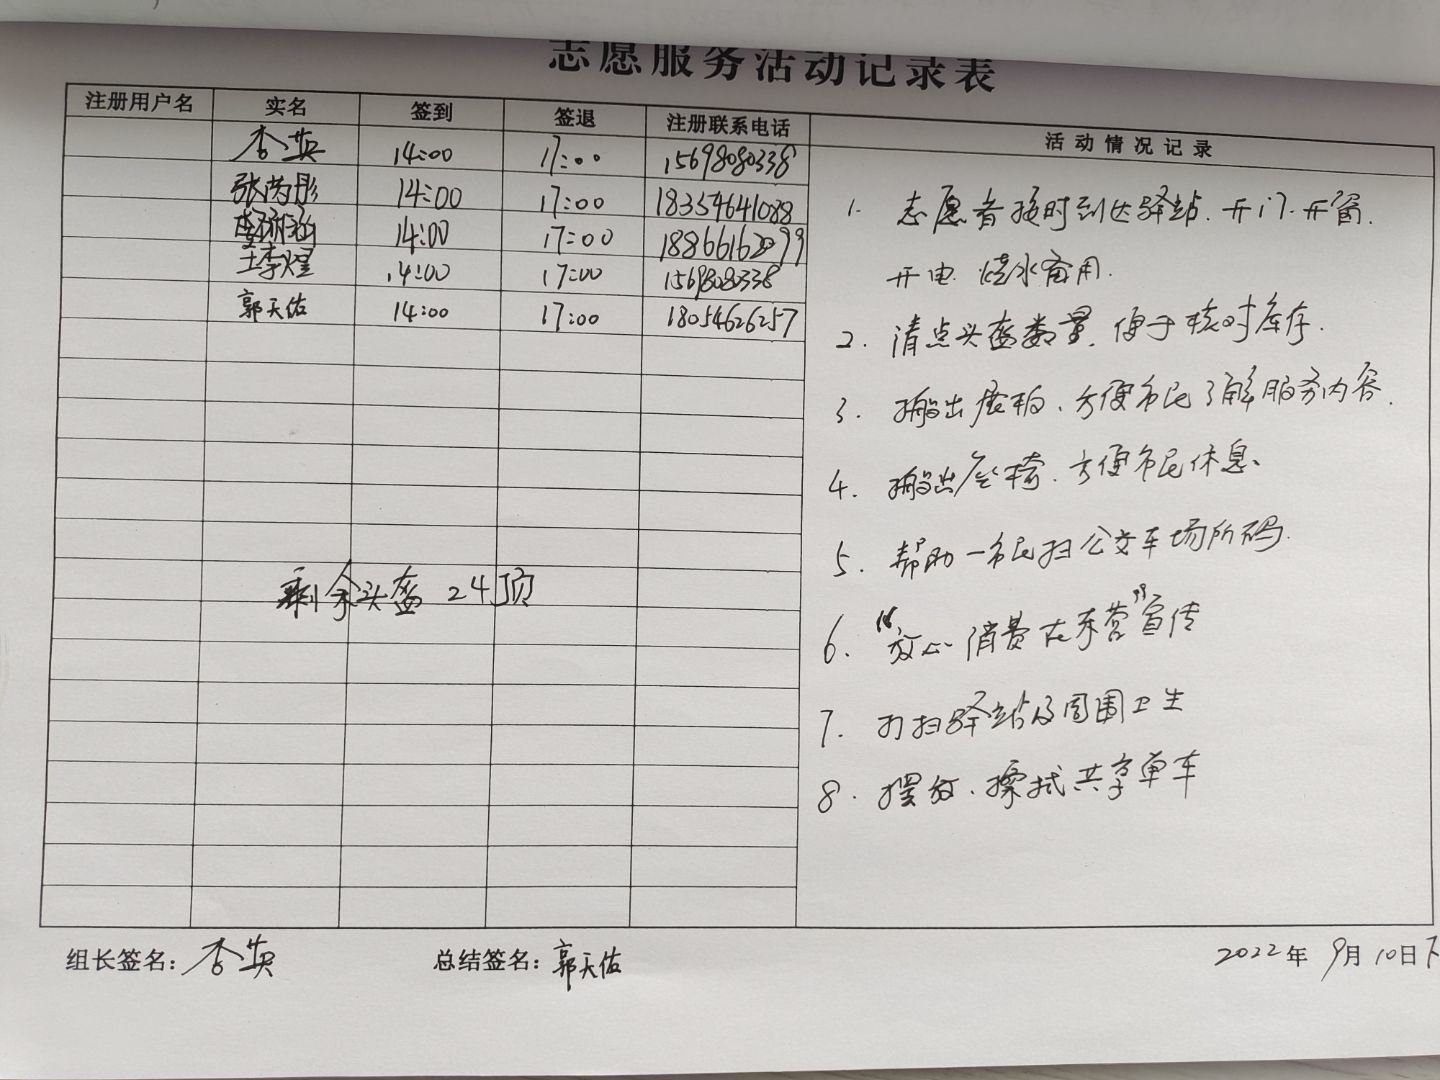 志愿服务活动记录表
注册用户名 实名 签到 签退 注册联系电话 活动情况记录
李英 14:00 17:00 15698080338
张芮彤 14:00 17:00 18354641088
14:00 17:00 18866162099
王李煜 14:00 17:00 15698080338
郭天佑 14:00 17:00 18054626257
剩余头盔24顶
1. 志愿者按时到达驿站.开门.开窗.
开电.烧水备用.
2. 清点头盔数量,便于核对库存.
3. 搬出展柏、方便市民了解服务内容.
4. 搬出座椅.方便市民休息、
5. 帮助一市民扫公交车场所码.
6. “放心消费在东营”宣传
7. 打扫驿站及周围卫生
8. 摆放、擦拭共享单车
组长签名：李英 总结签名：郭天佑 2022年 9月10日下